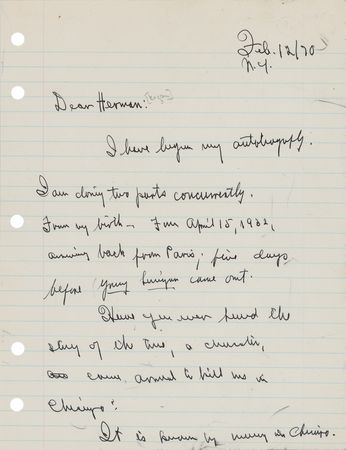 Feb. 12/70
N.Y.
Dear Herman:
I have begun my autobiography.
I am doing two parts concurrently.
From my birth – From April 15, 1932,
arriving back from Paris, five days
before Young Lonigan came out.
Have you ever heard the
story of the time, a character,
came around to kill me in
Chicago?
It is known by many in Chicago.